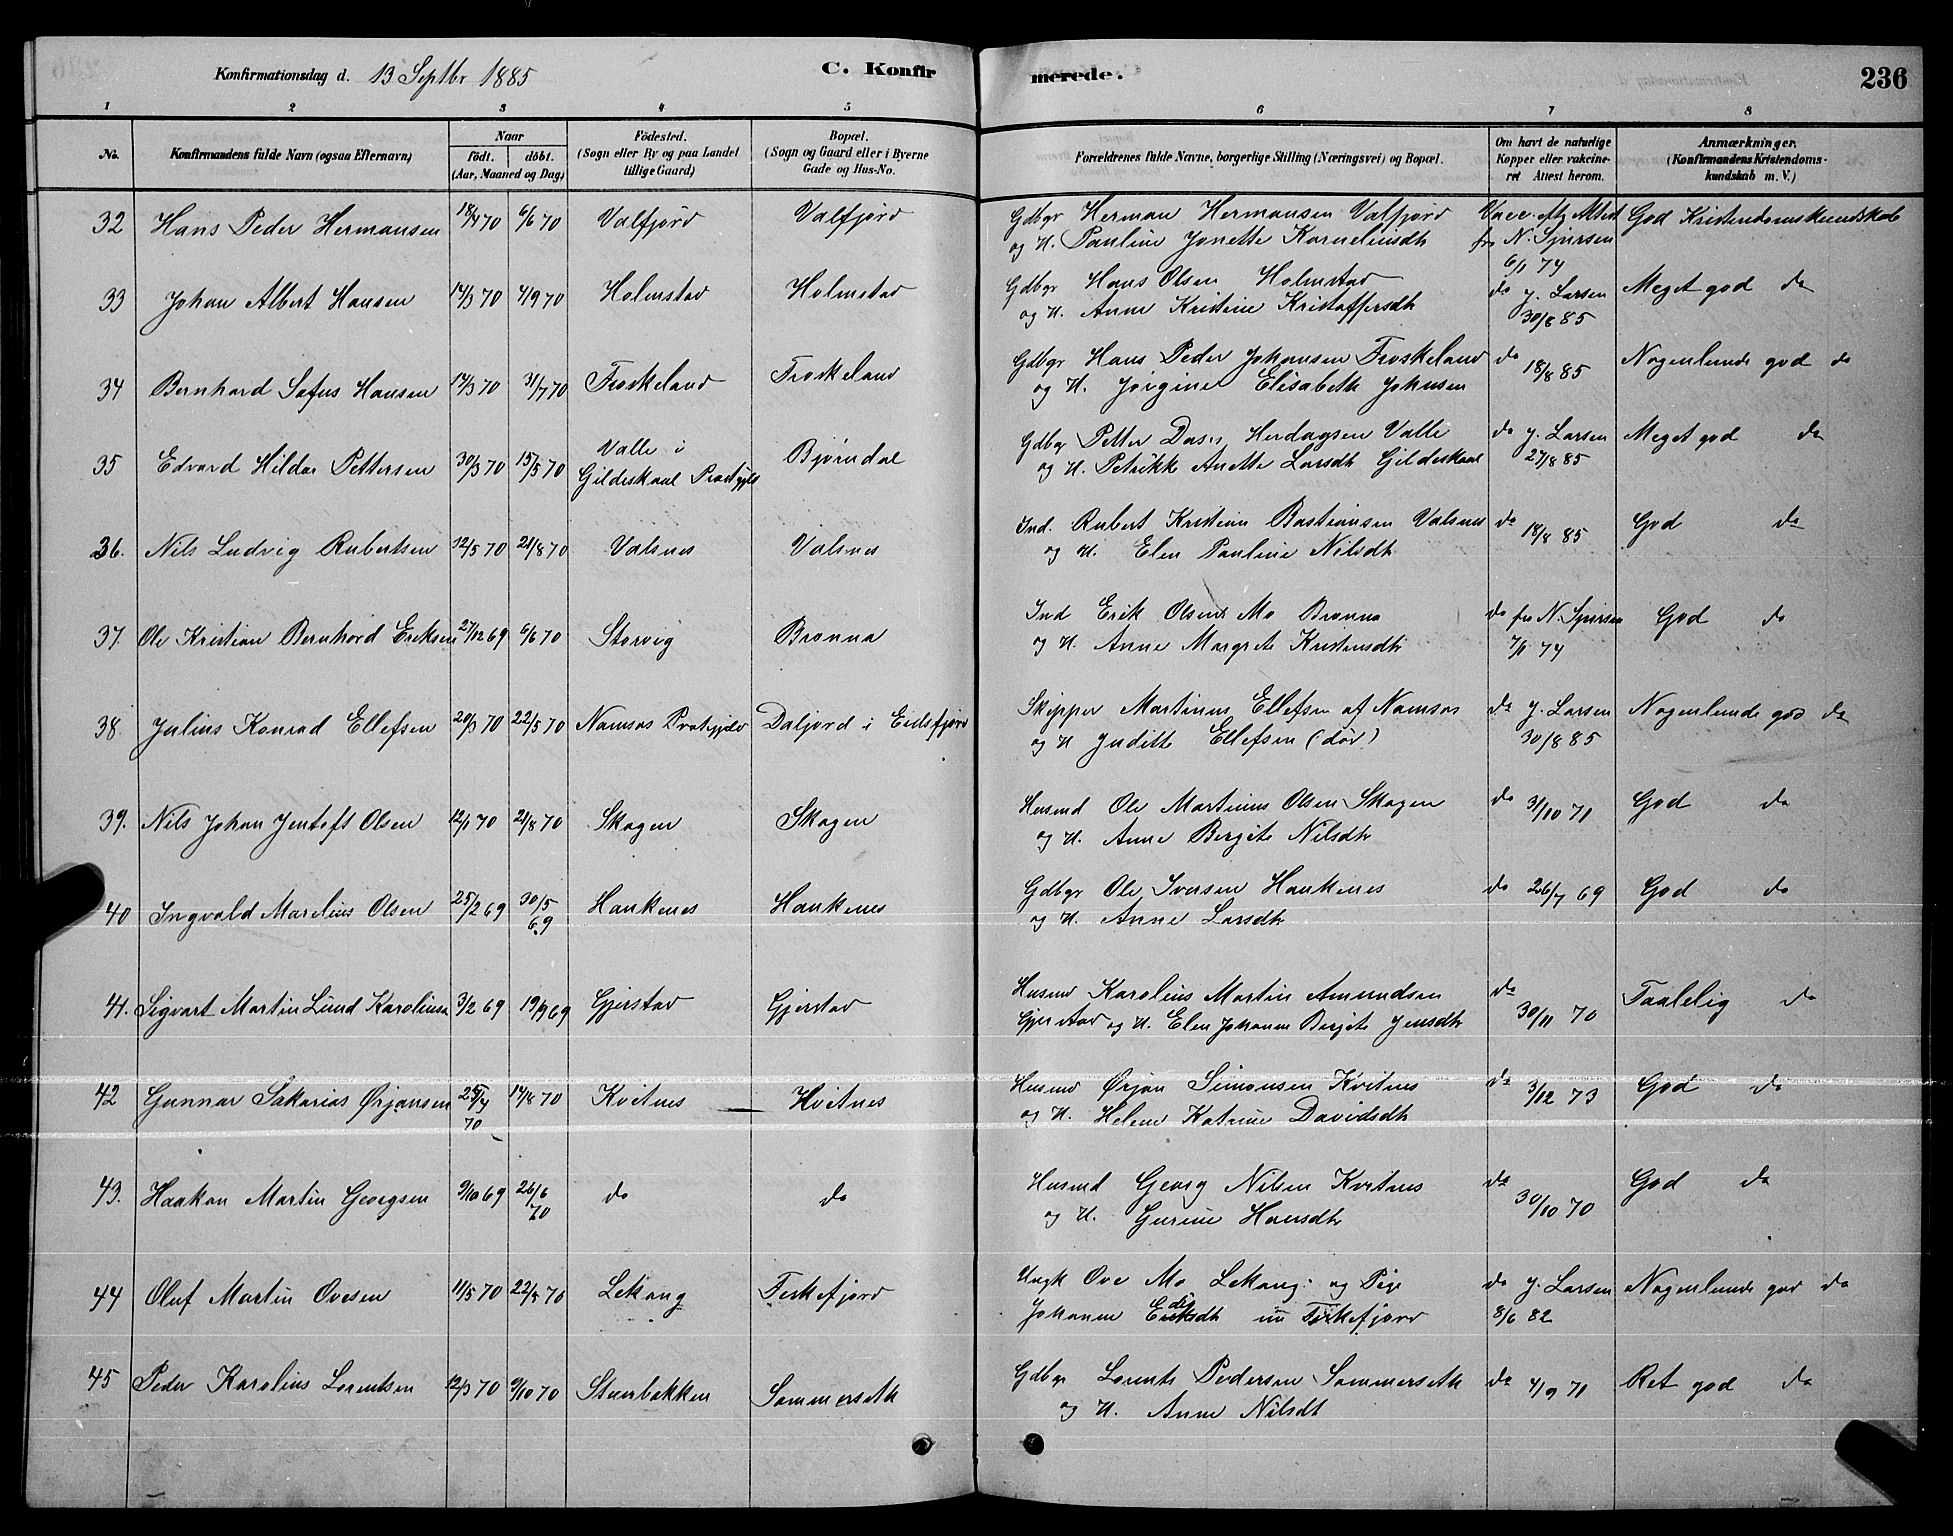 Konfirmationsdag d. 13 Septbr 1885
C. Konfirmerede.
236
1 2 3 4 5 6 7 8
No.
Konfirmandens fulde Navn (ogsaa Efternavn)
Naar
födt. döbt.
(Aar, Maaned og Dag)
Födested.
(Sogn eller By og paa Landet
tillige Gaard)
Bopæl.
(Sogn og Gaard eller i Byerne
Gade og Hus-No.
Forældrenes fulde Navne, borgerlige Stilling (Næringsvei) og Bopæl.
Om havt de naturlige
Kopper eller vakcine-
ret Attest herom.
Anmærkninger.
(Konfirmandens Kristendoms-
kundskab m. V.)
32 Hans Peder Hermansen 18/4 70 6/6 70 Valfjord Valfjord Gdbgr Herman Hermansen Valfjord Vacc. Attest God Kristendomskundskab
og H. Pauline Jonette Korneliusdtr fra N. Sjursen
6/1 74
33 Johan Albert Hansen 14/3 70 4/9 70 Holmstad Holmstad Gdbgr Hans Olsen Holmstad do J. Larsen Meget god do
og H. Anne Kristine Kristoffersdtr 30/8 85
34 Bernhard Sofus Hansen 14/3 70 31/7 70 Froskeland Froskeland Gdbgr Hans Peder Johansen Froskeland do 18/8 85 Nogenlunde god do
og H. Jørgine Elisabeth Johnsen
35 Edvard Hildar Pettersen 30/3 70 15/5 70 Valle i Gildeskaal Bjørndal Gdbgr Petter Herdagsen Valle do J. Larsen Meget god do
og H. Petrikke Anette Larsdtr Gildeskaal 27/8 85
36. Nils Ludvig Rubertsen 12/5 70 21/8 70 Valsnes Valsnes Ind. Rubert Kristian Bastiansen Valsnes do 18/8 85 God do
og H. Elen Pauline Nilsdtr
37. Ole Kristian Bernhard Eriksen 27/12 69 6/6 70 Storvig Bronna Ind Erik Olsen Mo Bronna do fra N. Sjursen God do
og H. Anne Margrete Kristensdtr 7/1 74
38. Julius Konrad Ellefsen 20/3 70 22/5 70 Namsos Dalfjord i Eidsfjord Skipper Martinus Ellefsen af Namsos do J. Larsen Nogenlunde god do
og H Juditte Ellefsen (død) 30/8 85
39. Nils Johan Jentoft Olsen 12/1 70 21/8 70 Skogen Skogen Husmd Ole Martinus Olsen Skogen do 3/10 71 God do
og H. Anne Bergite Nilsdtr
40 Ingvald Marelius Olsen 25/2 69 30/5 69 Haukenes Haukenes Gdbgr Ole Iversen Haukenes do 26/7 69 God do
og H. Anne Larsdtr
41. Sigvart Martin Lund Karoliussen 3/2 69 19/9 69 Gjerstad Gjerstad Husmd Karolius Martin Amundsen do 30/11 70 Taalelig do
Gjerstad og H. Elen Johanna Bergite Jensdtr
42 Gunnar Sakarias Ørjansen 25/4 70 14/8 70 Kvitnes Kvitnes Husmd Ørjan Simonsen Kvitnes do 3/12 73 God do
og H. Helene Katrine Davidsdtr
43. Haakon Martin Georgsen 9/10 69 26/6 70 do do Husmd Georg Nilsen Kvitnes do 30/10 70 God do
og H. Gurine Hansdtr
44 Oluf Martin Ovesen 11/5 70 22/5 70 Lekang Fiskefjord Ungk Ove Mo Lekang: og Pige do J. Larsen Nogenlunde god do
Johanna Eriksdtr nu Fiskefjord 8/6 82
45 Peder Karolius Lorentsen 12/3 70 9/10 70 Steenbakken Sommerseth Gdbgr Lorents Pedersen Sommerseth do 4/9 71 Ret god do
og H. Anne Nilsdt